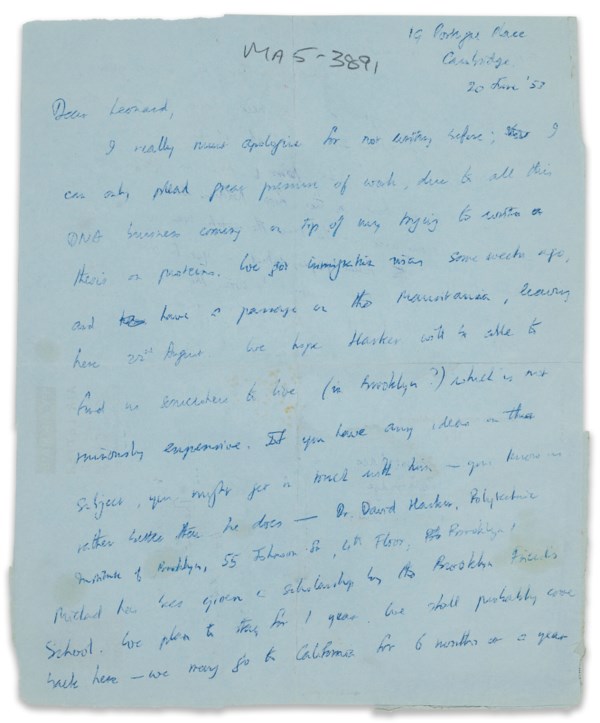 MA 5-3891
19 Portugal Place
Cambridge
20 June '53
Dear Leonard,
I really must apologise for not writing before; I
can only plead great pressure of work, due to all this
DNA business coming on top of my trying to write a
thesis on proteins. We got immigration visas some weeks ago,
and have a passage on the Mauretania, leaving
here 22nd August. We hope Harker will be able to
find us somewhere to live (in Brooklyn?) which is not
ruinously expensive. If you have any ideas on this
subject, you might get in touch with him — you know us
rather better than he does — Dr. David Harker, Polytechnic
Institute of Brooklyn, 55 Johnson St, 4th Floor, Brooklyn!
Michael has been given a scholarship by the Brooklyn Friends
School. We plan to stay for 1 year. We shall probably come
back here — we may go to California for 6 months or a year